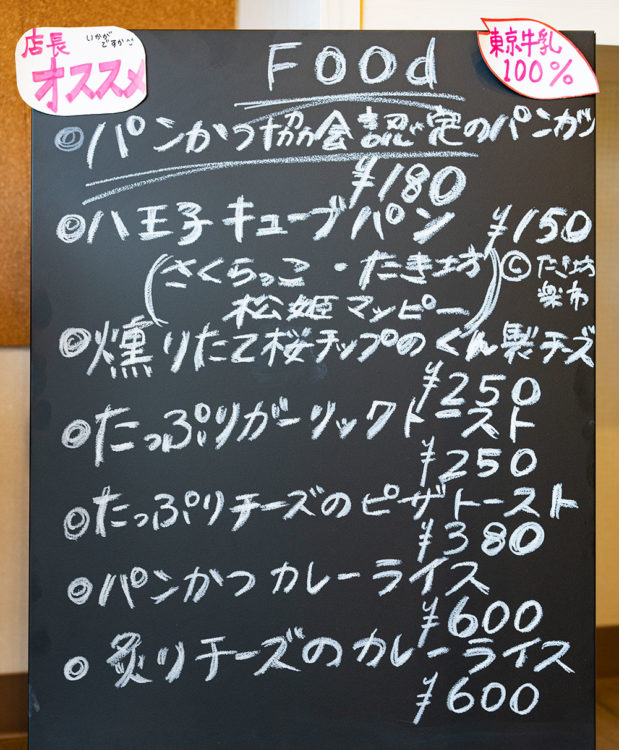 店長
いかが
ですか^^
オススメ
東京牛乳
100%
Food
◎パンかつ協会認定のパンカツ
¥180
◎八王子キューブパン ¥150
(さくらっこ・たき坊
松姫マッピー)
©たき坊
◎燻りたて桜チップのくん製チーズ
¥250
◎たっぷりガーリックトースト
¥250
◎たっぷりチーズのピザトースト
¥380
◎パンかつカレーライス
¥600
◎炙りチーズのカレーライス
¥600